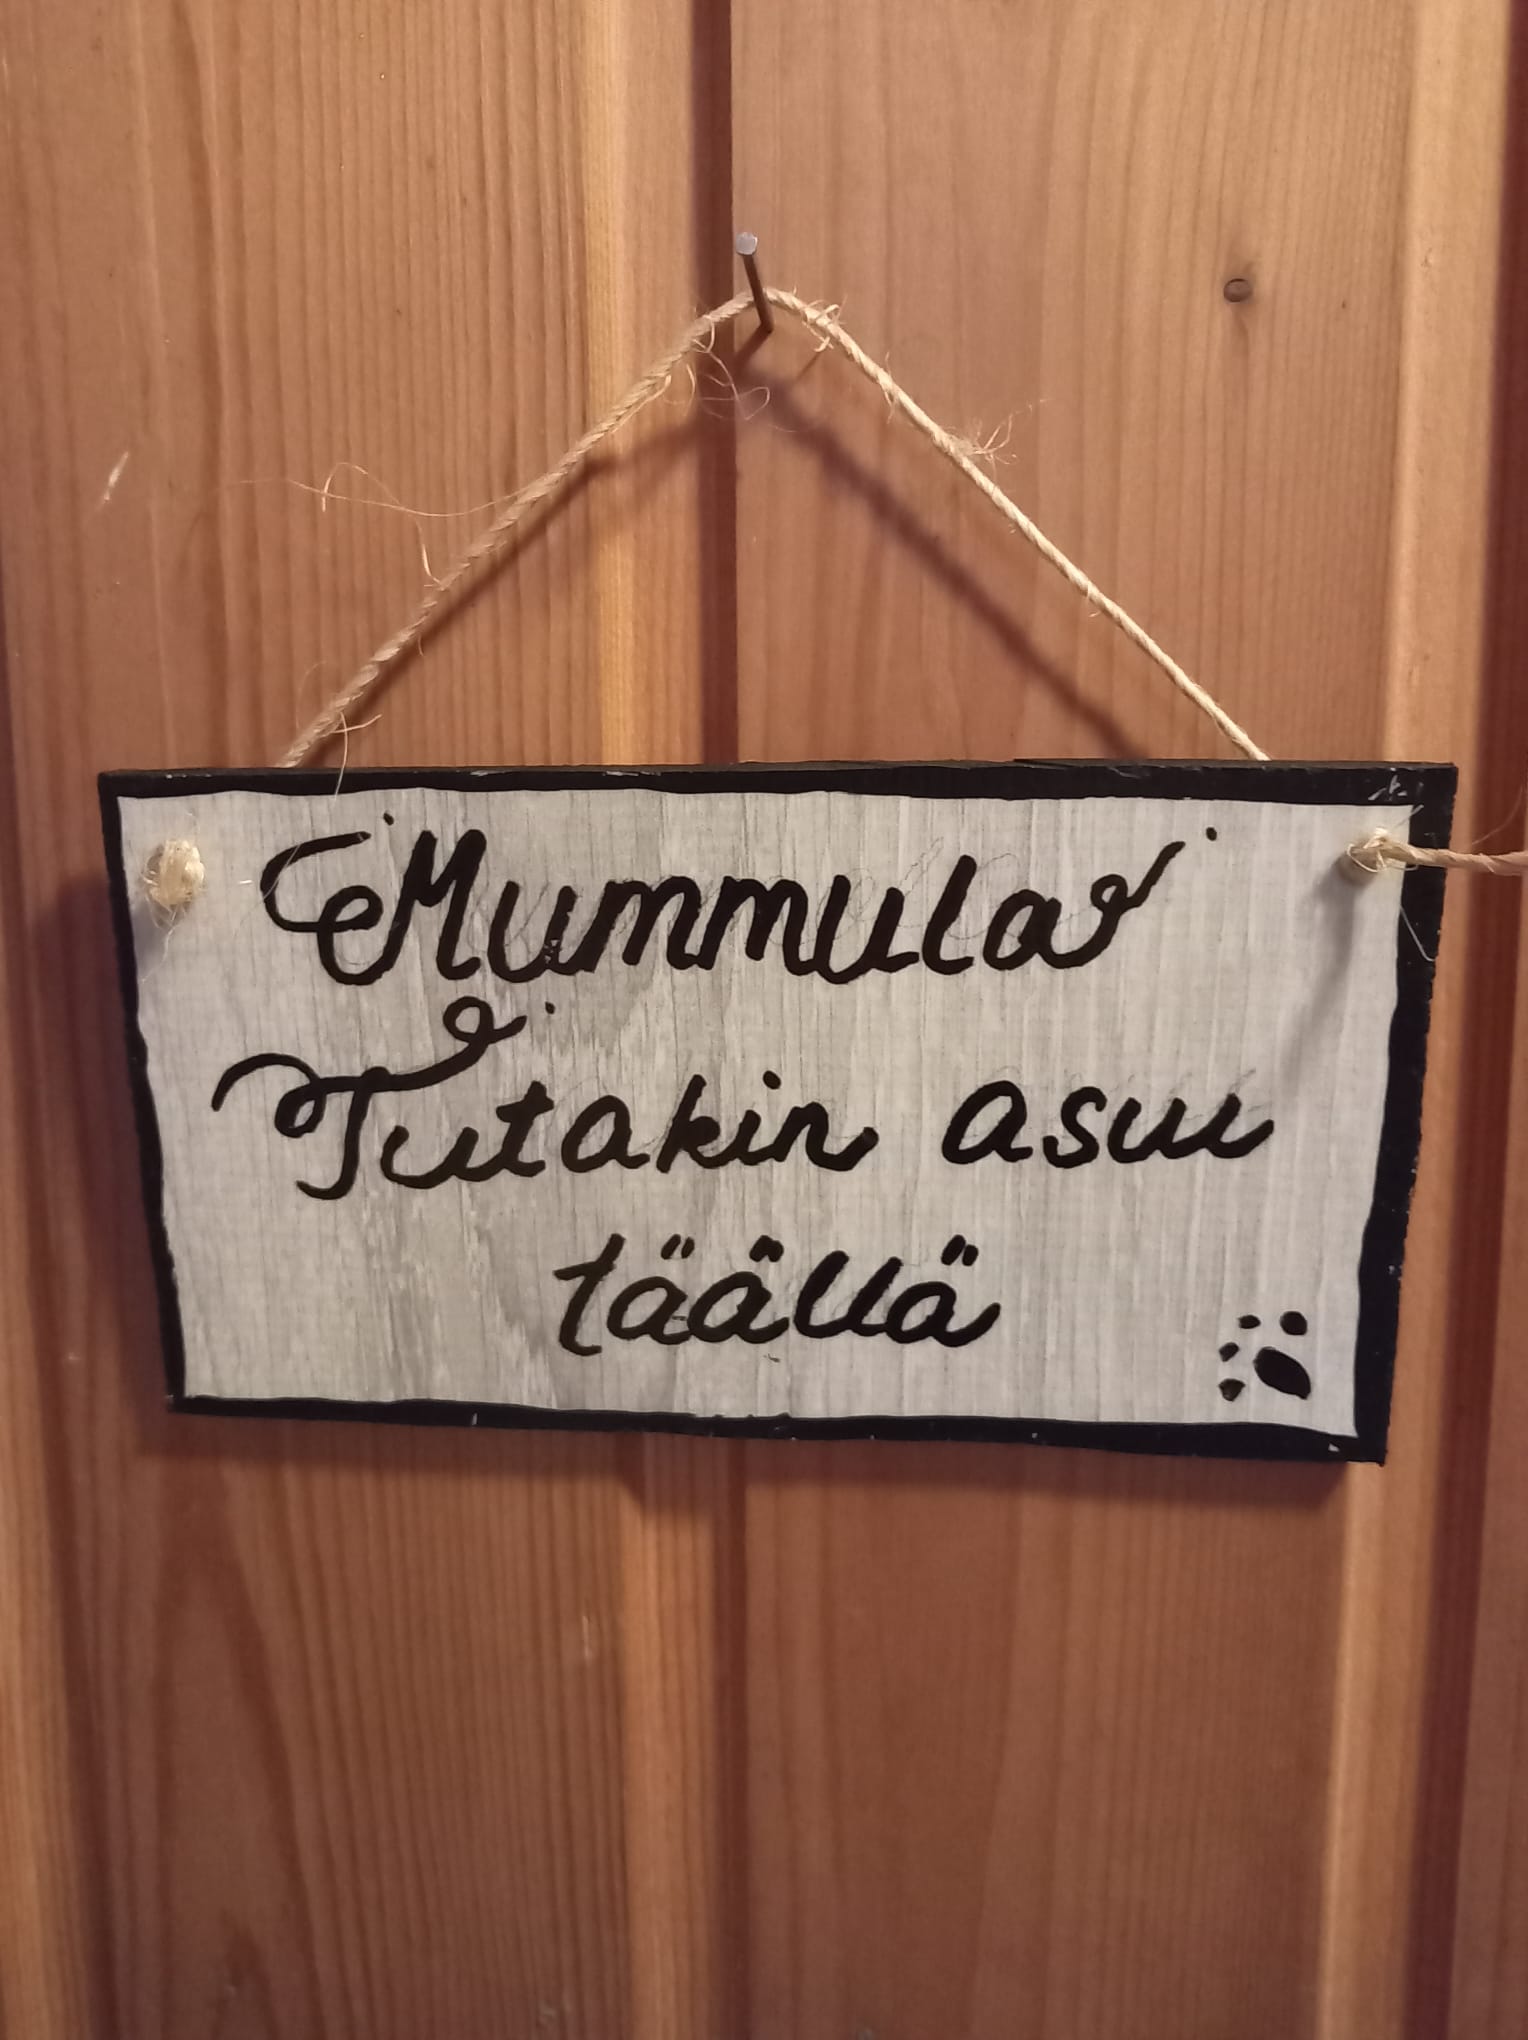 Mummula
Tutakin asuu
täällä